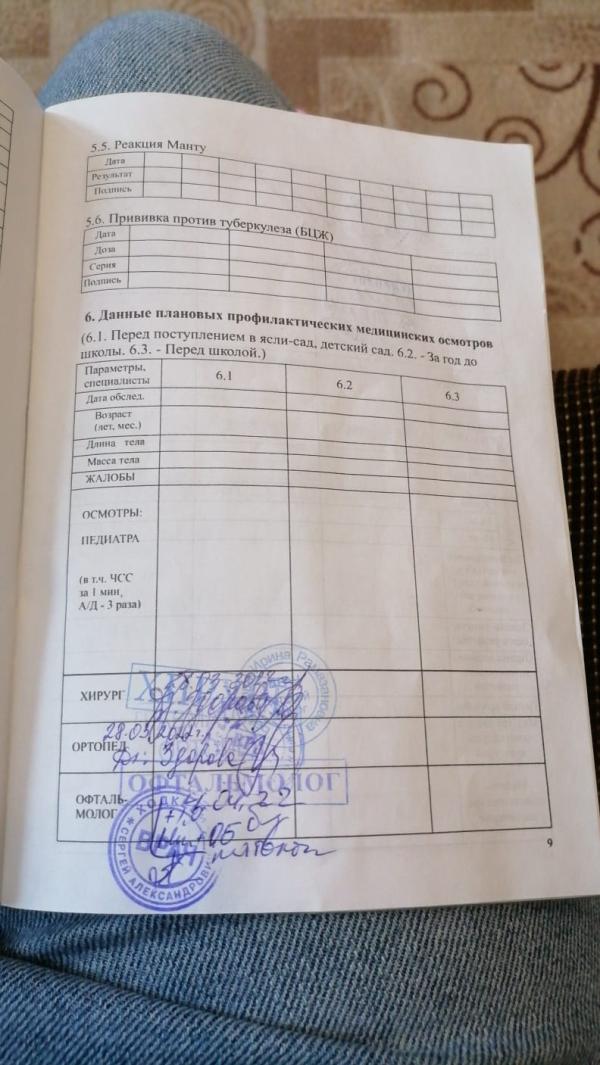 5.5. Реакция Манту
Дата
Результат
Подпись
5.6. Прививка против туберкулеза (БЦЖ)
Дата
Доза
Серия
Подпись
6. Данные плановых профилактических медицинских осмотров
(6.1. Перед поступлением в ясли-сад, детский сад. 6.2. - За год до
школы. 6.3. - Перед школой.)
Параметры,
специалисты
6.1
6.2
6.3
Дата обслед.
Возраст
(лет, мес.)
Длина тела
Масса тела
ЖАЛОБЫ
ОСМОТРЫ:
ПЕДИАТРА
(в т.ч. ЧСС
за 1 мин,
А/Д - 3 раза)
Ирина Рамазановна
ХИРУРГ
28.03.2022г.
ОРТОПЕД
Ds: Здорова
ОФТАЛЬМОЛОГ
ОФТАЛЬ-
МОЛОГ
04.22
ВРАЧ
СЕРГЕЙ АЛЕКСАНДРОВИЧ
9